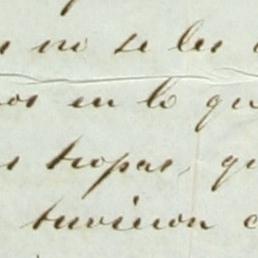 no se les
os en lo qu
s tropas, qu
tuvieron c